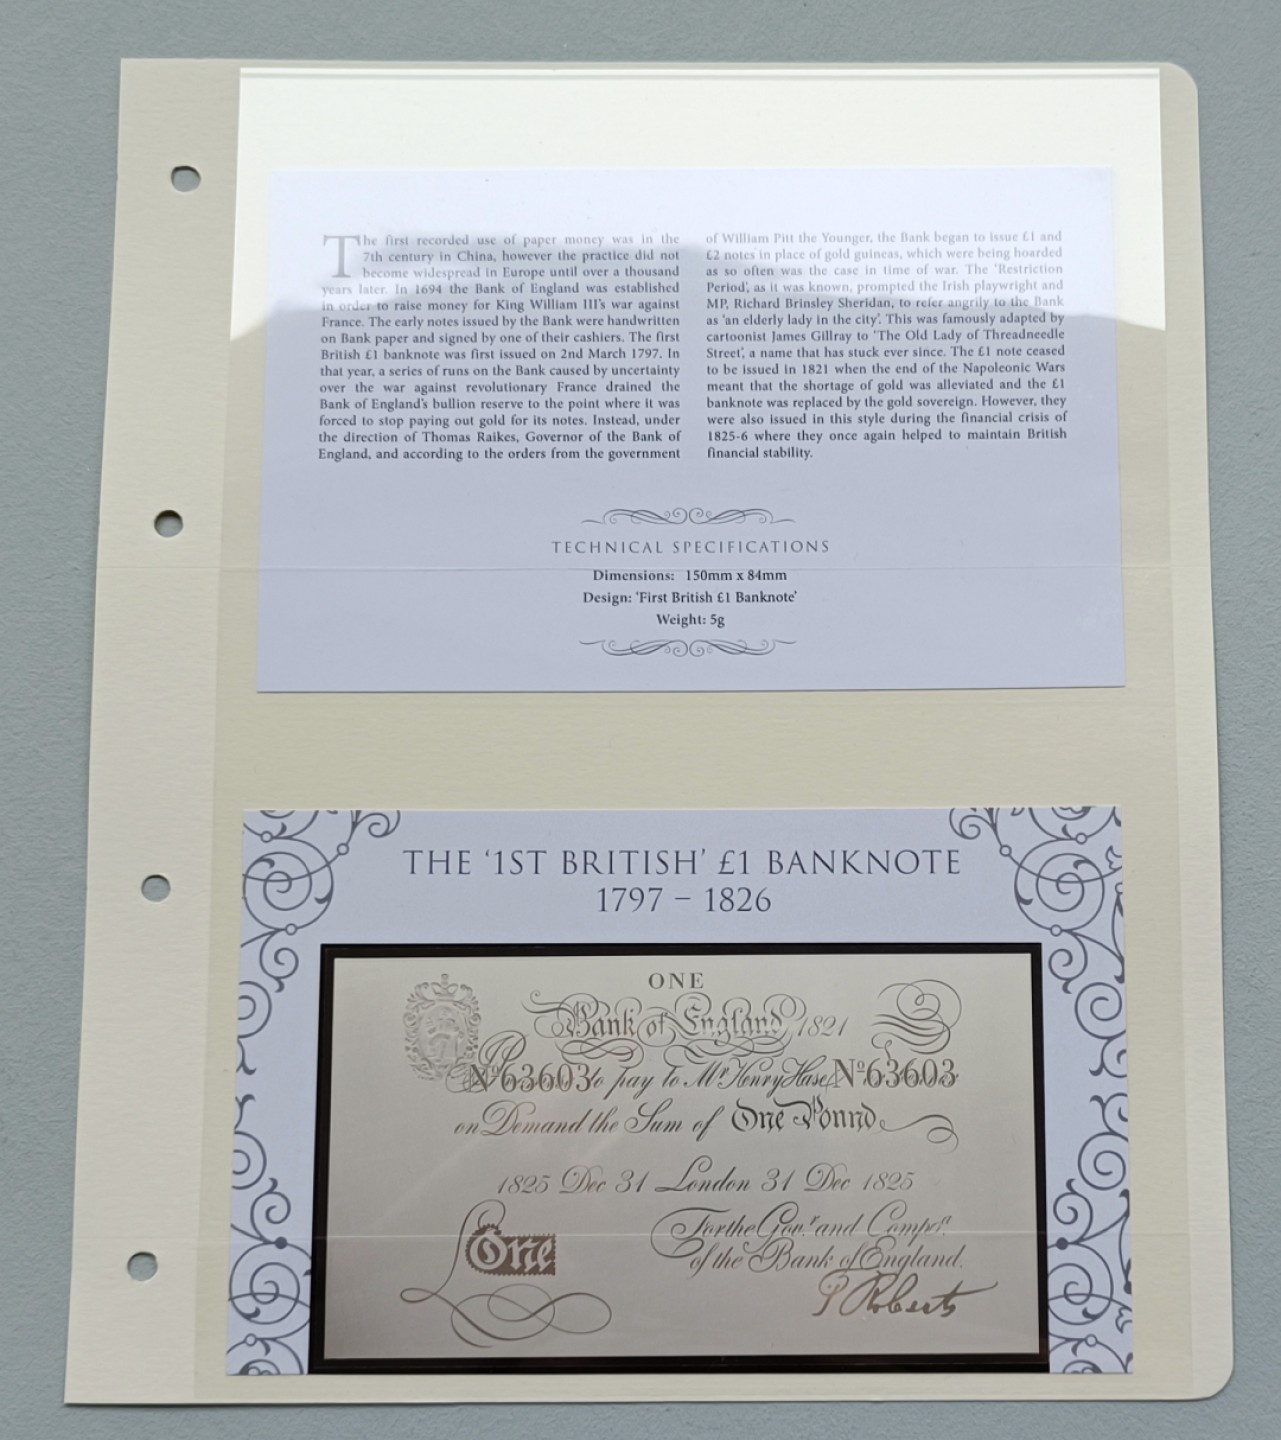 The first recorded use of paper money was in the
7th century in China, however the practice did not
become widespread in Europe until over a thousand
years later. In 1694 the Bank of England was established
in order to raise money for King William III's war against
France. The early notes issued by the Bank were handwritten
on Bank paper and signed by one of their cashiers. The first
British £1 banknote was first issued on 2nd March 1797. In
that year, a series of runs on the Bank caused by uncertainty
over the war against revolutionary France drained the
Bank of England's bullion reserve to the point where it was
forced to stop paying out gold for its notes. Instead, under
the direction of Thomas Raikes, Governor of the Bank of
England, and according to the orders from the government
of William Pitt the Younger, the Bank began to issue £1 and
£2 notes in place of gold guineas, which were being hoarded
as so often was the case in time of war. The 'Restriction
Period', as it was known, prompted the Irish playwright and
MP, Richard Brinsley Sheridan, to refer angrily to the Bank
as 'an elderly lady in the city'. This was famously adapted by
cartoonist James Gillray to 'The Old Lady of Threadneedle
Street', a name that has stuck ever since. The £1 note ceased
to be issued in 1821 when the end of the Napoleonic Wars
meant that the shortage of gold was alleviated and the £1
banknote was replaced by the gold sovereign. However, they
were also issued in this style during the financial crisis of
1825-6 where they once again helped to maintain British
financial stability.
TECHNICAL SPECIFICATIONS
Dimensions: 150mm x 84mm
Design: 'First British £1 Banknote'
Weight: 5g
THE '1ST BRITISH' £1 BANKNOTE
1797 – 1826
ONE
Bank of England 1821
Nº63603 to pay to Mr Henry Hase Nº63603
on Demand the Sum of One Pound
1825 Dec 31 London 31 Dec 1825
For the Gov.r and Comp.a
£One of the Bank of England.
P Roberts